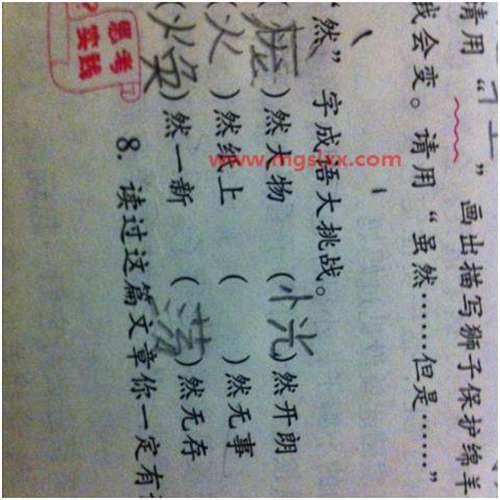 请用“ ”画出描写狮子保护绵羊
我会变。请用“虽然……但是……”
“然”字成语大挑战。
( )然大物 (恍)然开朗
(火)然纸上 ( )然无事
(焕)然一新 (荡)然无存
8. 读过这篇文章你一定有
思考
实践